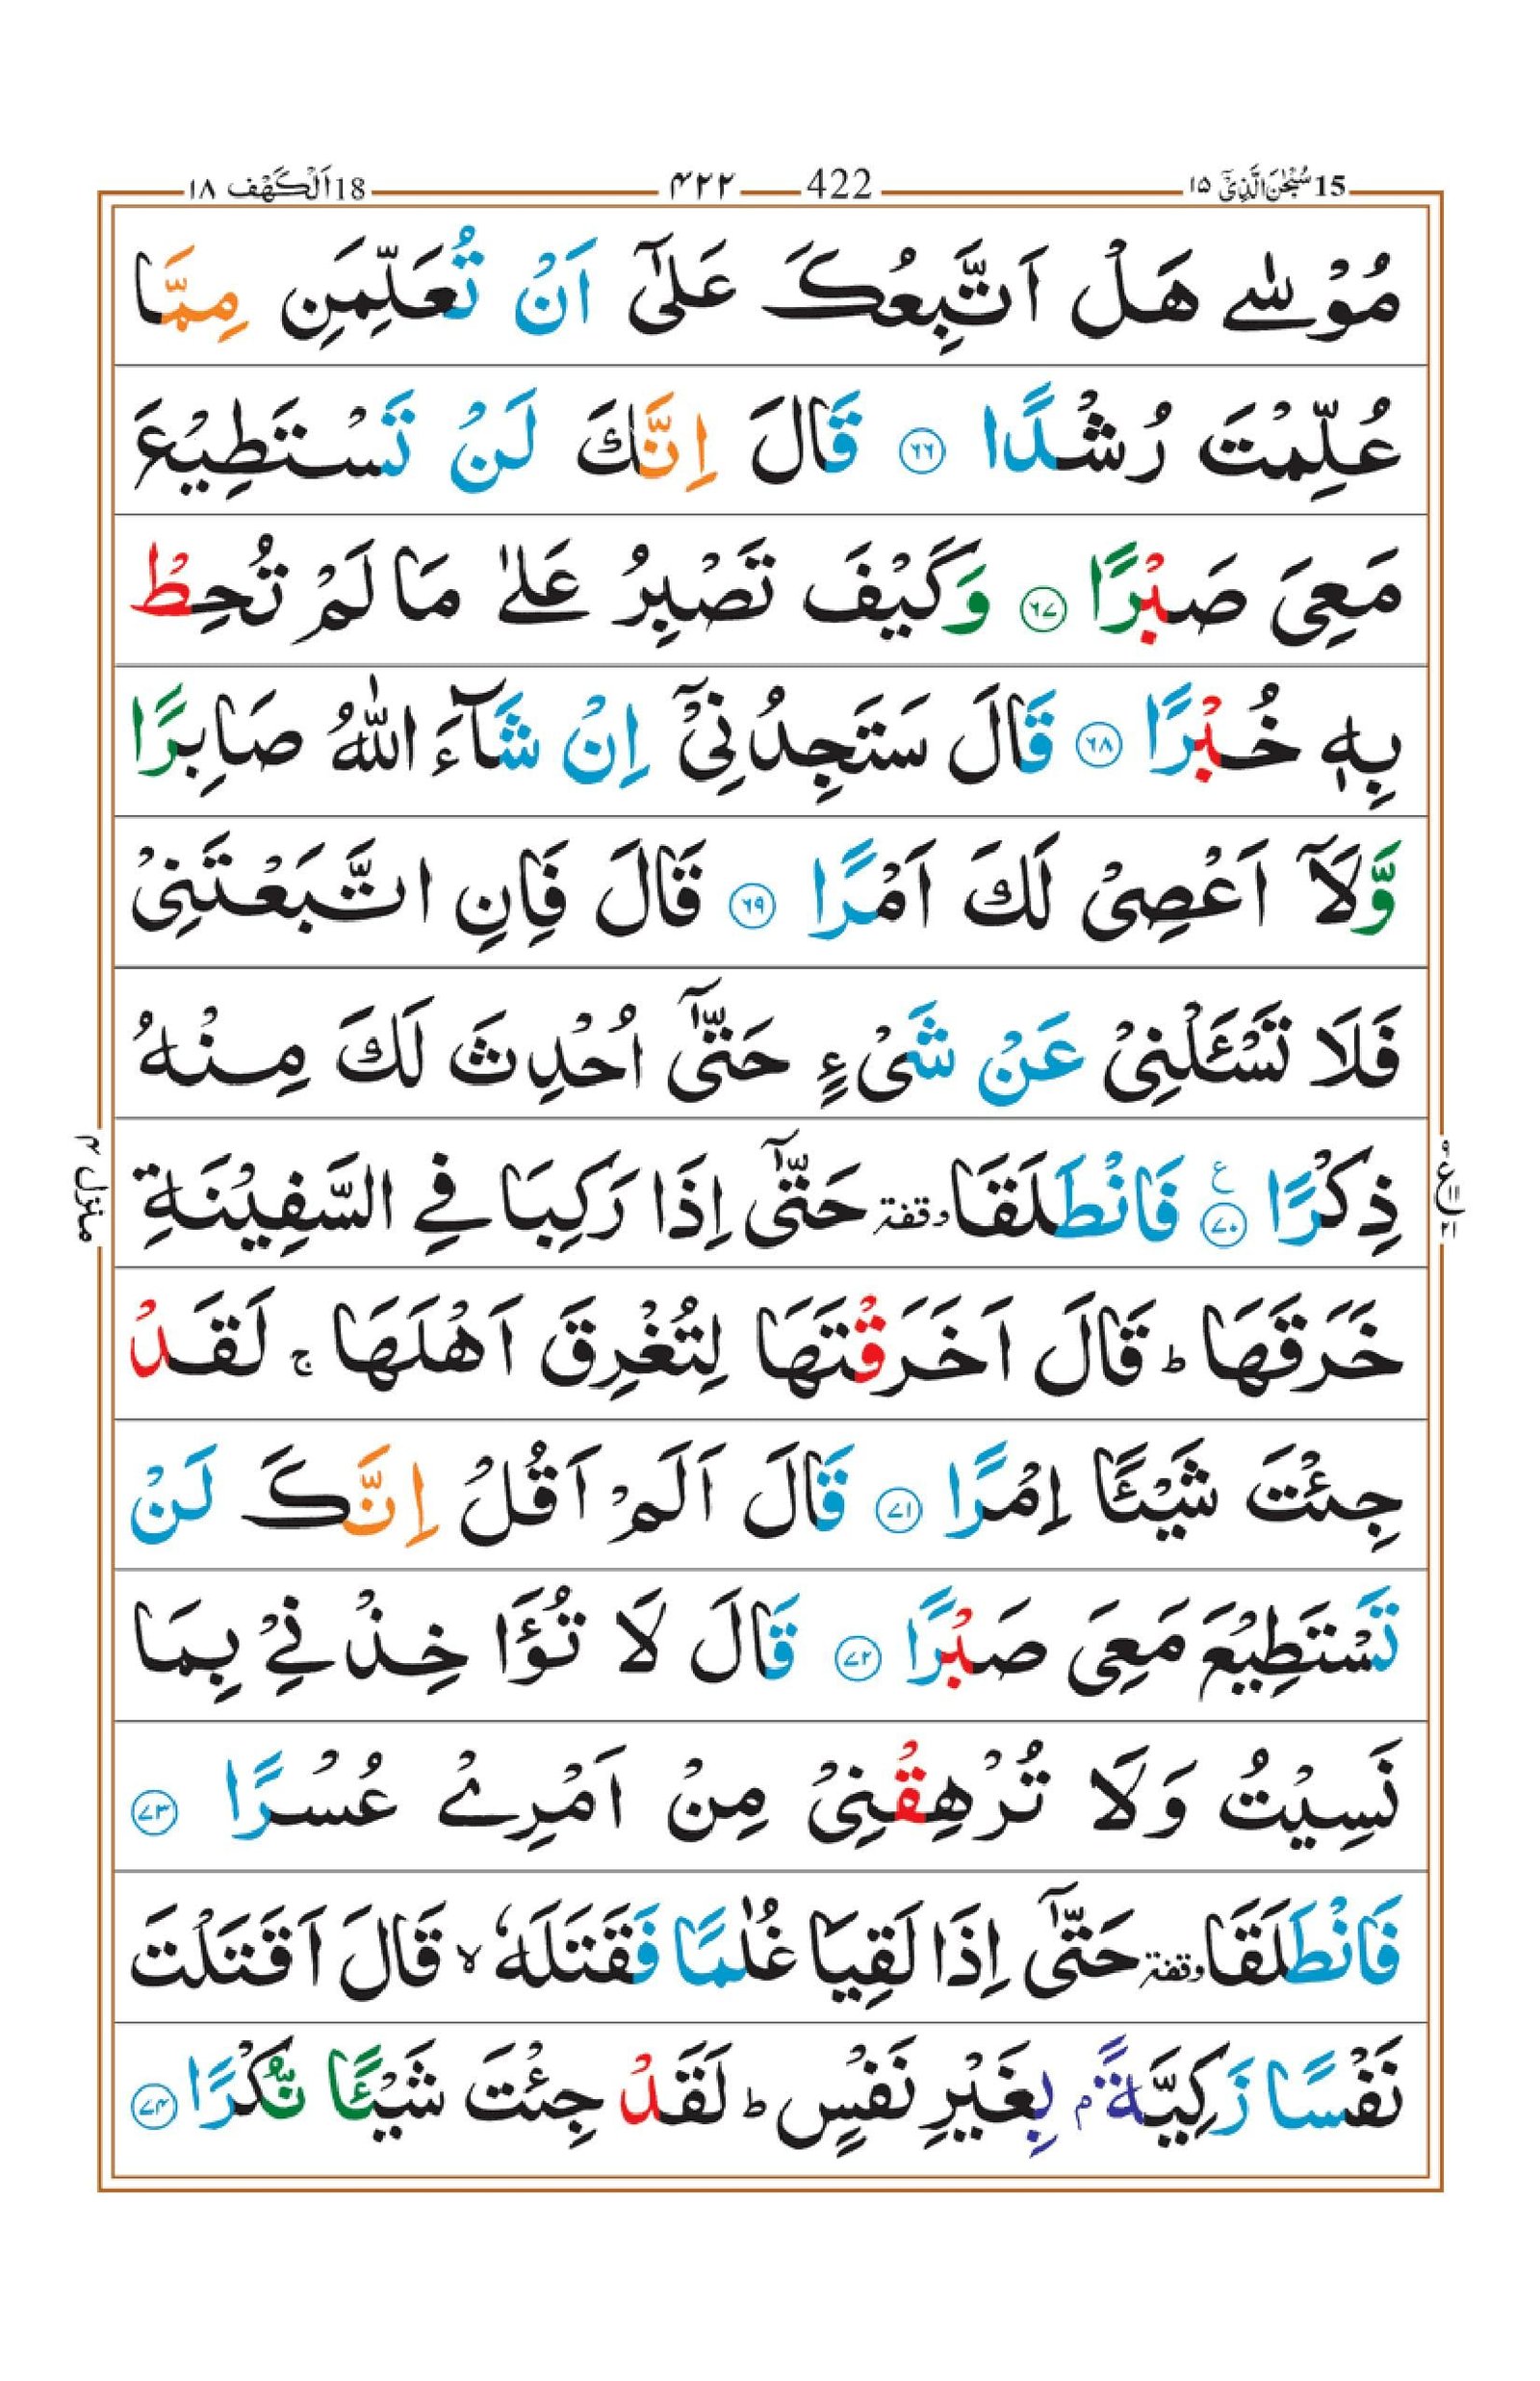 15 سُبْحٰنَ الَّذِیْۤ ۱۵
422 ۴۲۲
18 اَلْكَهْف ۱۸
مُوْسٰى هَلْ اَتَّبِعُكَ عَلٰۤى اَنْ تُعَلِّمَنِ مِمَّا
عُلِّمْتَ رُشْدًا ﴿۶۶﴾ قَالَ اِنَّكَ لَنْ تَسْتَطِیْعَ
مَعِیَ صَبْرًا ﴿۶۷﴾ وَكَیْفَ تَصْبِرُ عَلٰى مَا لَمْ تُحِطْ
بِهٖ خُبْرًا ﴿۶۸﴾ قَالَ سَتَجِدُنِیْۤ اِنْ شَآءَ اللّٰهُ صَابِرًا
وَّلَاۤ اَعْصِیْ لَكَ اَمْرًا ﴿۶۹﴾ قَالَ فَاِنِ اتَّبَعْتَنِیْ
فَلَا تَسْـَٔلْنِیْ عَنْ شَیْءٍ حَتّٰۤى اُحْدِثَ لَكَ مِنْهُ
ذِكْرًا ﴿۷۰﴾ ع فَانْطَلَقَا وقفة حَتّٰۤى اِذَا رَكِبَا فِی السَّفِیْنَةِ
خَرَقَهَا ؕ قَالَ اَخَرَقْتَهَا لِتُغْرِقَ اَهْلَهَا ۚ لَقَدْ
جِئْتَ شَیْـًٔا اِمْرًا ﴿۷۱﴾ قَالَ اَلَمْ اَقُلْ اِنَّكَ لَنْ
تَسْتَطِیْعَ مَعِیَ صَبْرًا ﴿۷۲﴾ قَالَ لَا تُؤَاخِذْنِیْ بِمَا
نَسِیْتُ وَلَا تُرْهِقْنِیْ مِنْ اَمْرِیْ عُسْرًا ﴿۷۳﴾
فَانْطَلَقَا وقفة حَتّٰۤى اِذَا لَقِیَا غُلٰمًا فَقَتَلَهٗ ۙ قَالَ اَقَتَلْتَ
نَفْسًا زَكِیَّةًۢ بِغَیْرِ نَفْسٍ ؕ لَقَدْ جِئْتَ شَیْـًٔا نُّكْرًا ﴿۷۴﴾
منزل ۴
۹ ع ۱۱ ۲۱